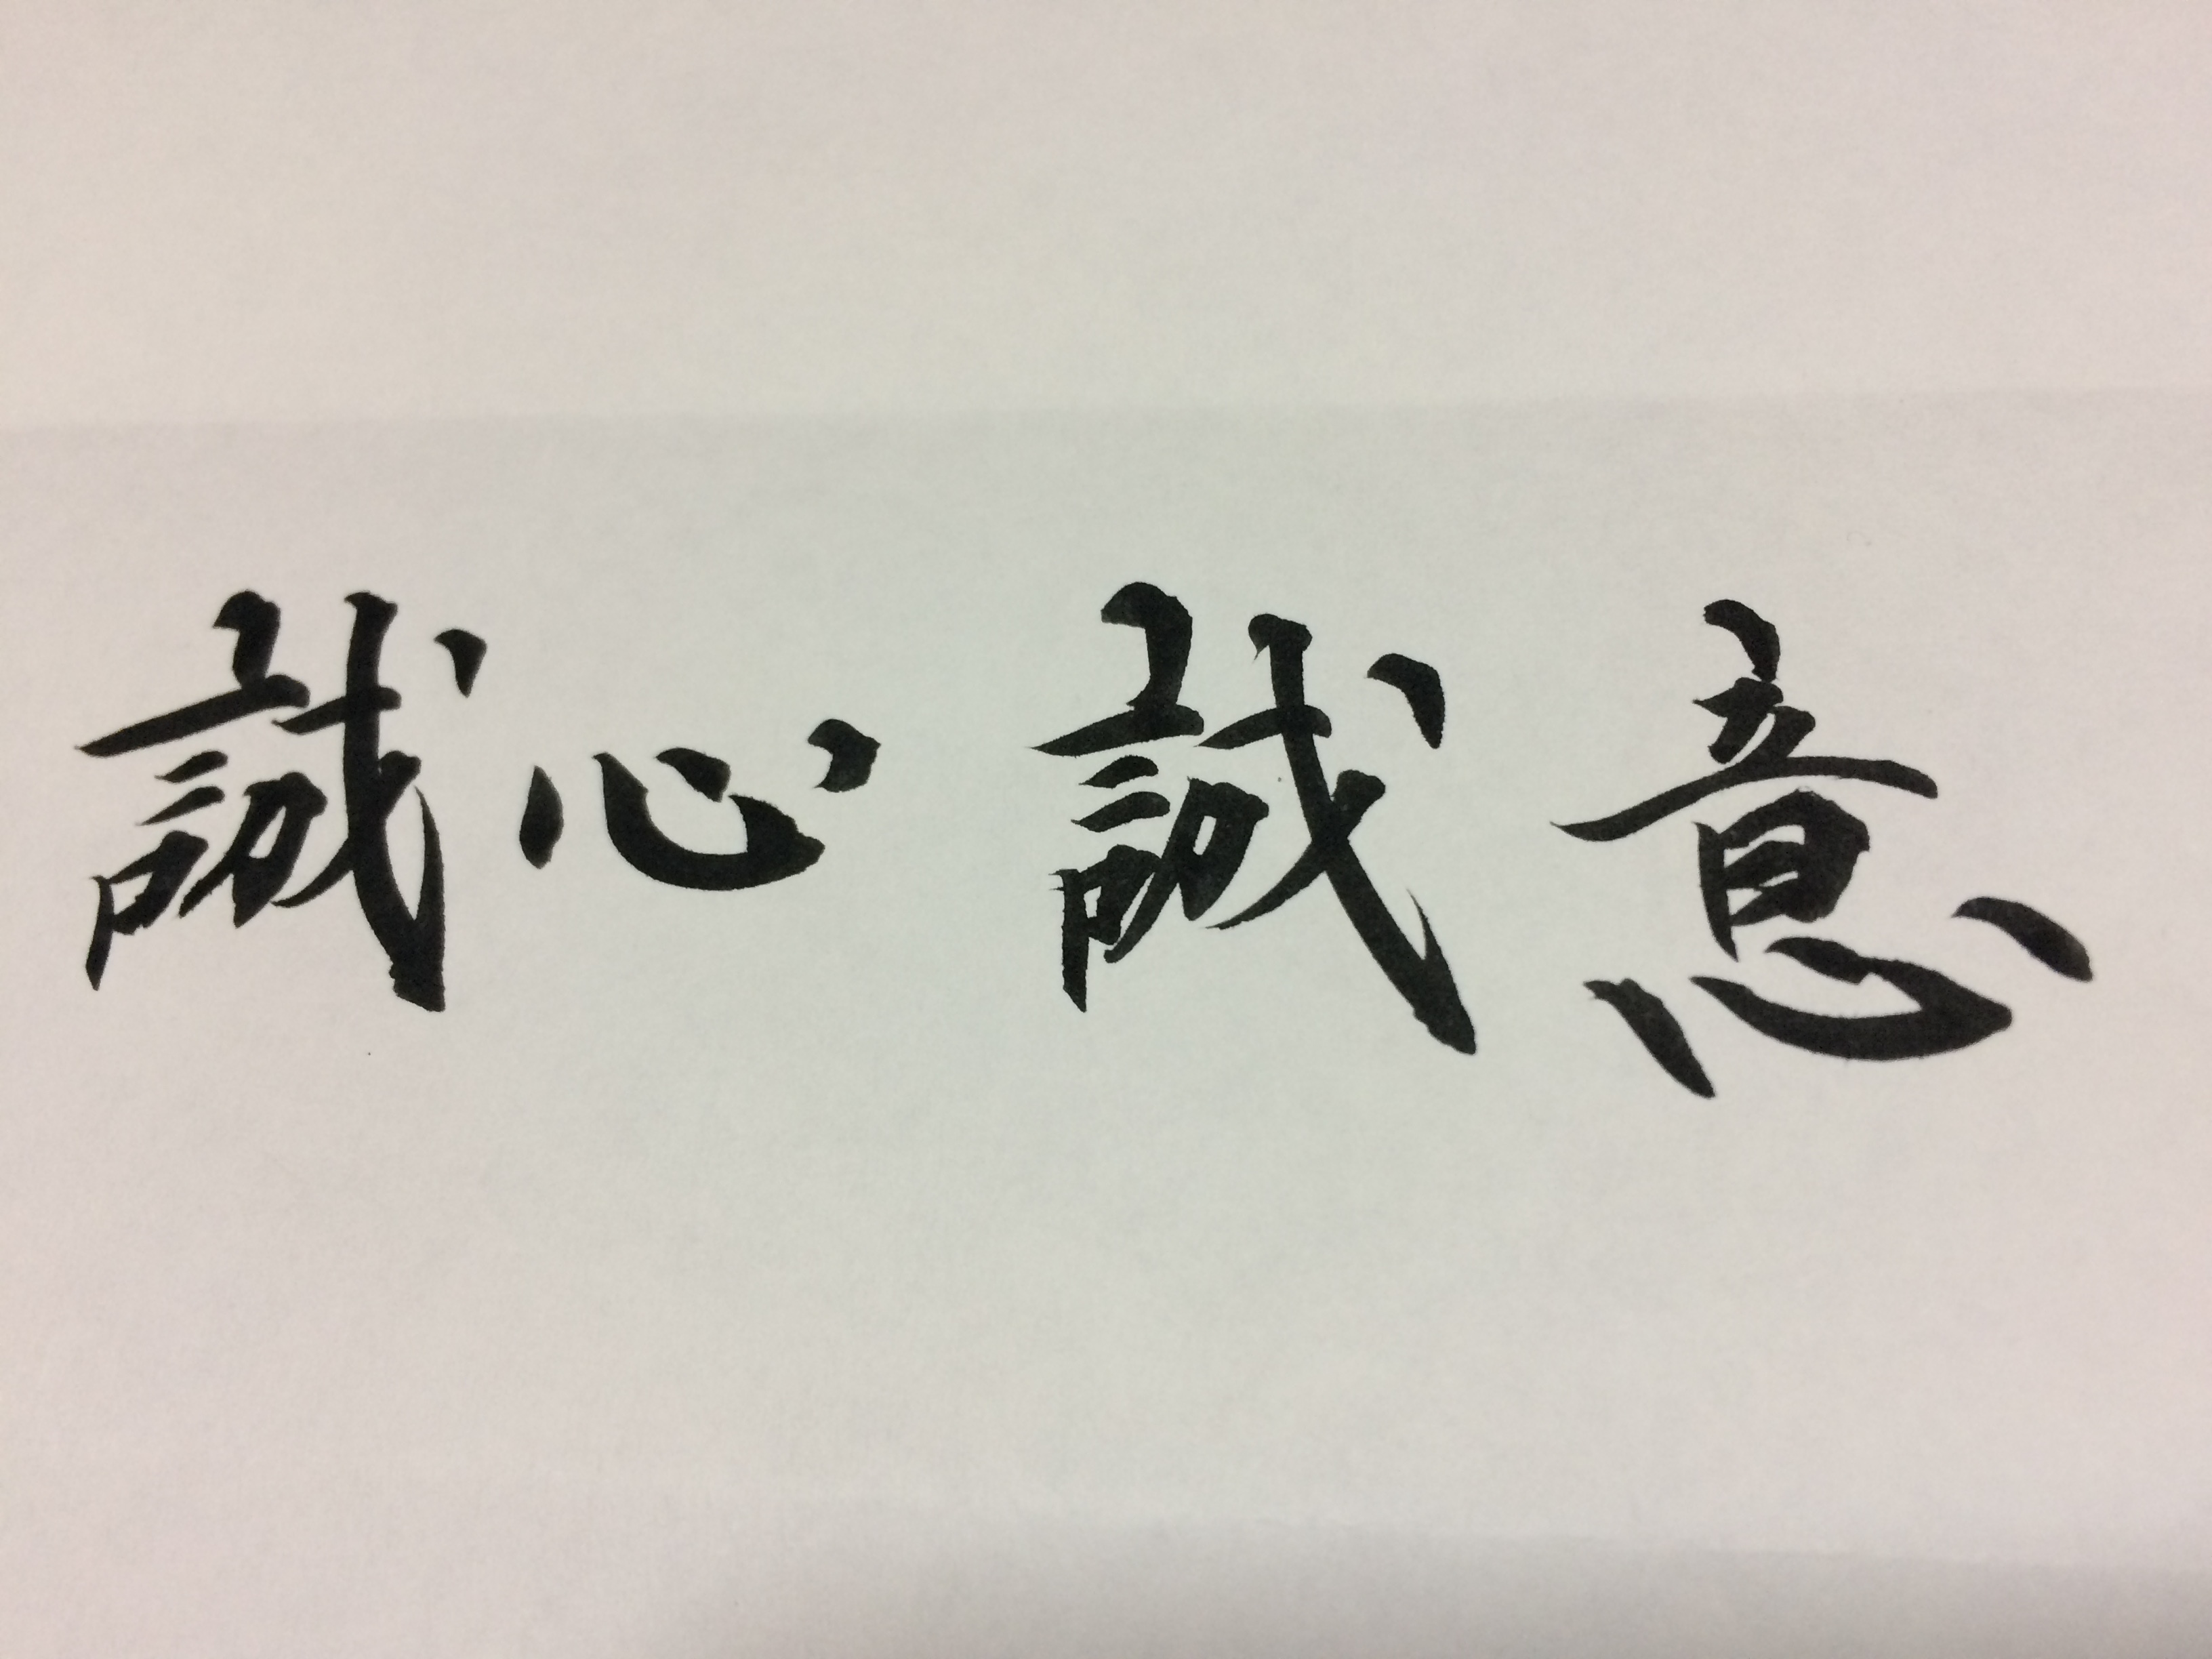 誠心誠意